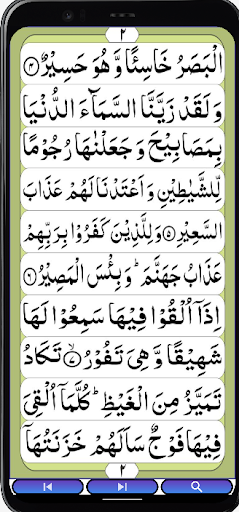 ٢
الْبَصَرُ خَاسِئًا وَّهُوَ حَسِيْرٌ ۝۴
وَلَقَدْ زَيَّنَّا السَّمَآءَ الدُّنْيَا
بِمَصَابِيْحَ وَجَعَلْنٰهَا رُجُوْمًا
لِّلشَّيٰطِيْنِ وَاَعْتَدْنَا لَهُمْ عَذَابَ
السَّعِيْرِ ۝۵ وَلِلَّذِيْنَ كَفَرُوْا بِرَبِّهِمْ
عَذَابُ جَهَنَّمَ ؕ وَبِئْسَ الْمَصِيْرُ ۝۶
اِذَاۤ اُلْقُوْا فِيْهَا سَمِعُوْا لَهَا
شَهِيْقًا وَّهِىَ تَفُوْرُ ۝۷ۙ تَكَادُ
تَمَيَّزُ مِنَ الْغَيْظِ ؕ كُلَّمَاۤ اُلْقِىَ
فِيْهَا فَوْجٌ سَاَلَهُمْ خَزَنَتُهَاۤ
٢